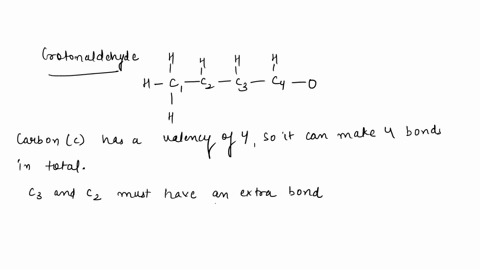 Crotonaldehyde
H H H H
H - C1 - C2 - C3 - C4 - O
H
Carbon (c) has a valency of 4, so it can make 4 bonds
in total.
C3 and C2 must have an extra bond